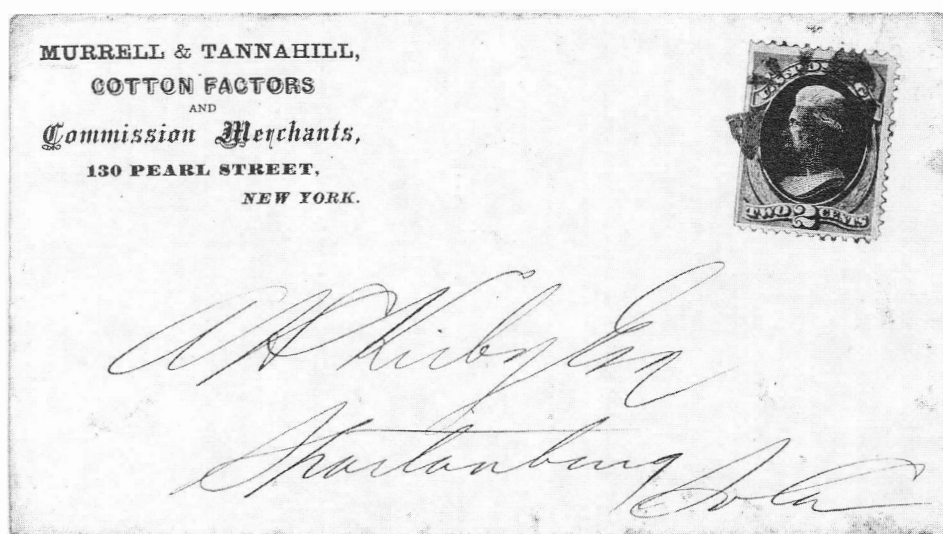 MURRELL & TANNAHILL,
COTTON FACTORS
AND
Commission Merchants,
130 PEARL STREET,
NEW YORK.
U.S. POSTAGE
TWO 2 CENTS
A H Kirby Esq
Spartanburg
So Ca